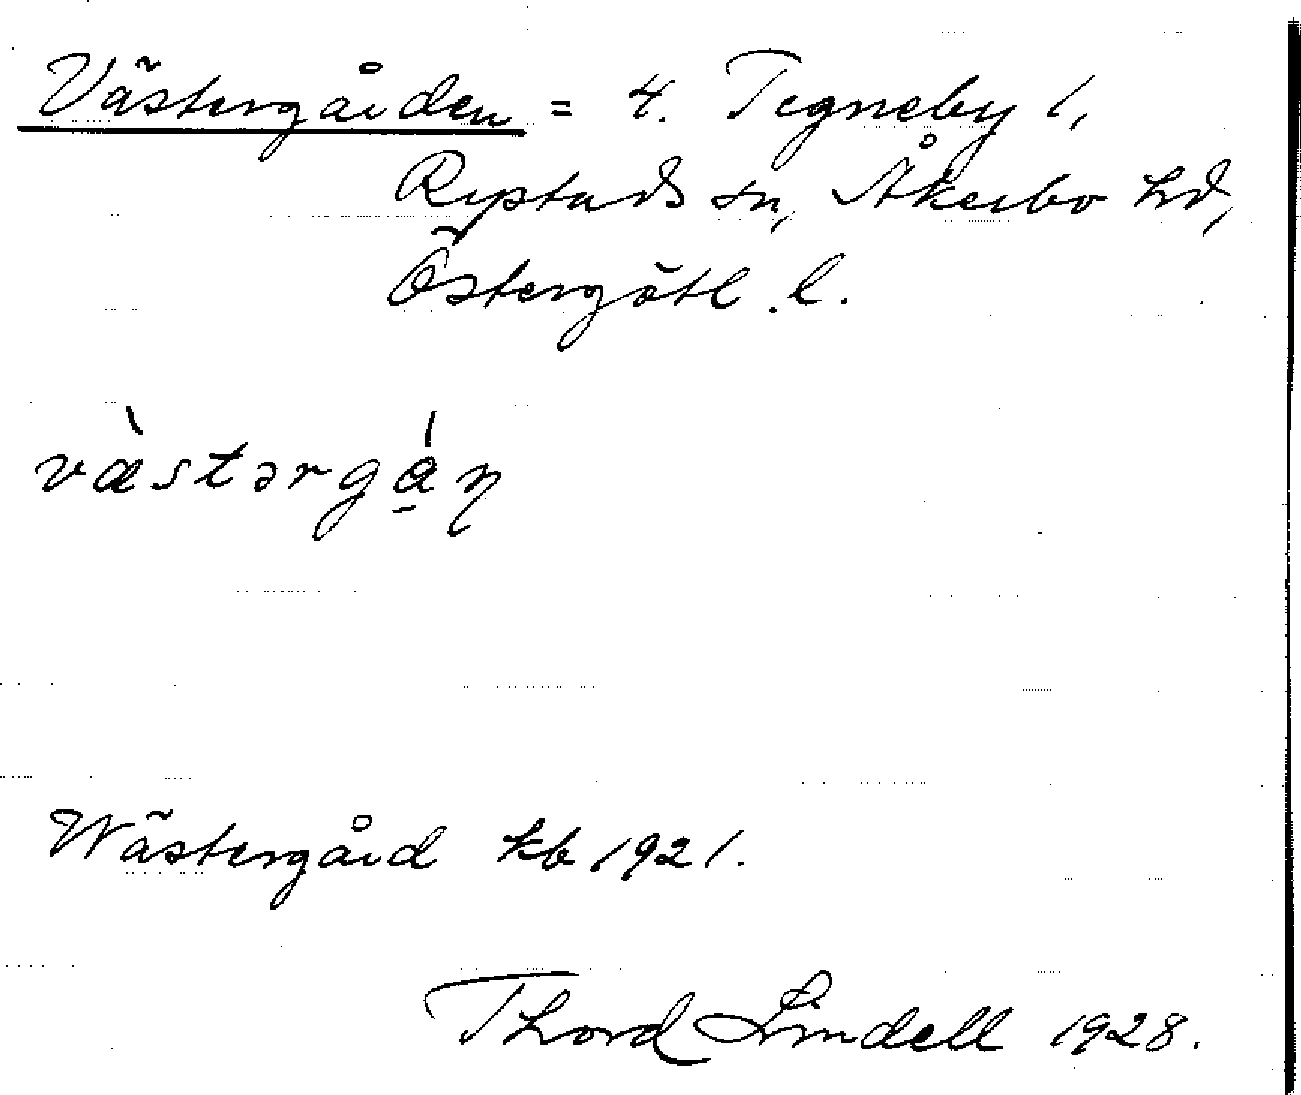 Västergården = 4. Tegneby 1,
Rystads sn, Åkerbo hd,
Östergötl. l.
västərgán
Wästergård kb 1921.
Thord Lindell 1928.